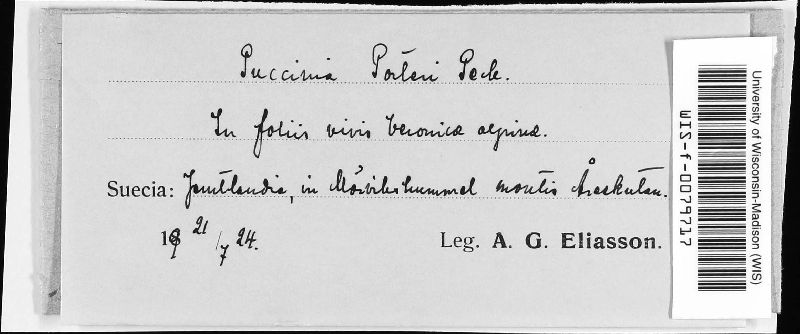 Puccinia Porteri Peck.
In foliis vivis Veronicæ alpinæ.
Suecia: Jemtlandia, in Mörvikshummel montis Åreskutan.
19 21/7 24.
Leg. A. G. Eliasson.
University of Wisconsin-Madison (WIS)
WIS-f-0079717